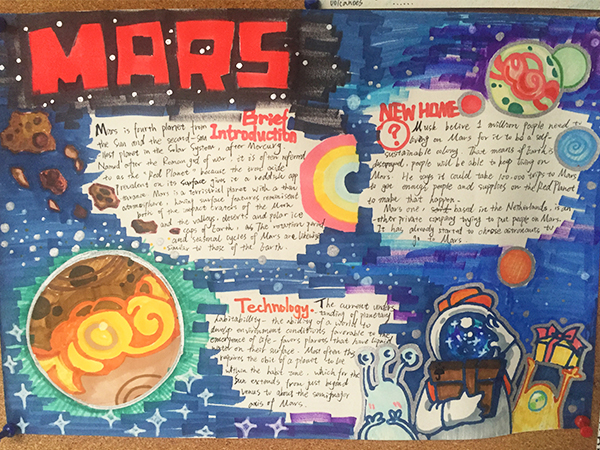 VOLCANOES ......
MARS
Brief
Introduction
Mars is fourth planet from
the Sun and the second-
last planet in the Solar System, after Mercury
Named after the Roman god of war, it is often referred
to as the "Red Planet" because the iron oxide
prevalent on its surface gives it a reddish
Mars is a terrestrial planet with a thin
atmosphere, having surface features reminiscent
both of the impact craters of the Moon
and the valleys, deserts and polar ice
caps of Earth. The rotation period
and seasonal cycles of Mars are likewise
similar to those of the Earth.
NEW HOME
?
Musk believe 1 million people need to
living on Mars for it to be a self-
sustainable colony. That means if Earth is
destroyed, people will be able to keep living on
Mars. He says it could take 100,000 trips to Mars
to get enough people and supplies on the Red Planet
to make that happen.
Mars one, based in the Netherlands, is an
other private company trying to put people on Mars.
It has already started to choose astronauts to
go to Mars
Technology.
The current unders
tanding of planetary
habitability - the ability of a world to
develop environment conditions favorable to
emergence of life - favors planets that have liquid
water on their surface. Most often this
requires the orbit of a planet to be
within the habit zone, which for the
Sun extends from just beyond
Venus to about the semimajor
axis of Mars.